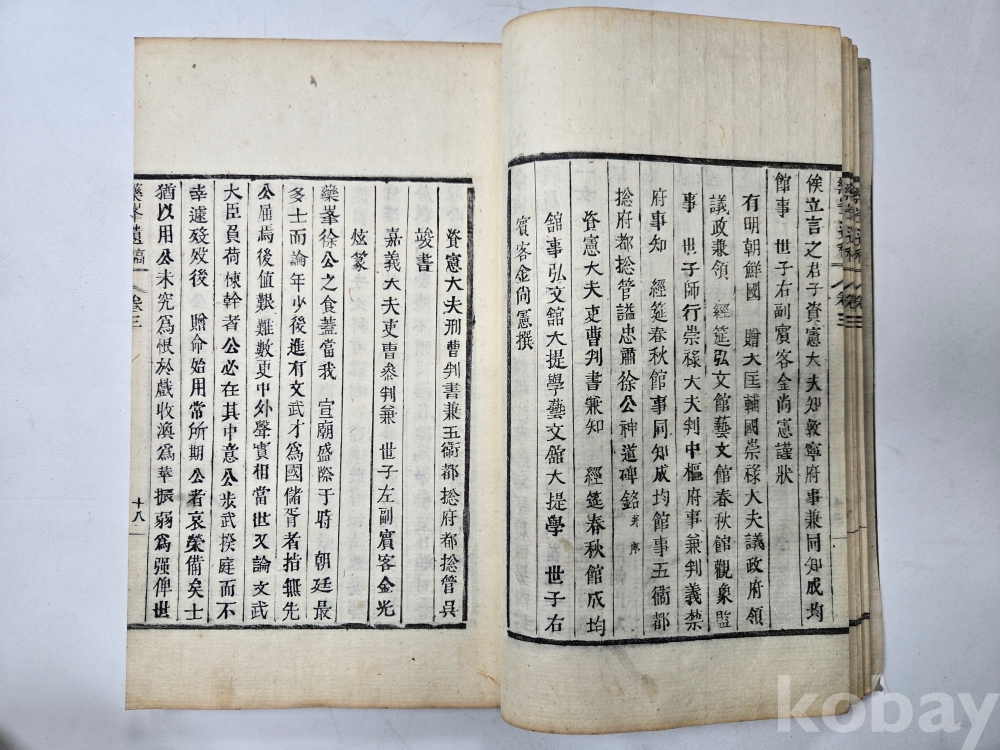 俟立言之君子資憲大夫知敦寧府事兼同知成均
館事 世子右副賓客金尚憲謹狀
有明朝鮮國 贈大匡輔國崇祿大夫議政府領
議政兼領 經筵弘文館藝文館春秋館觀象監
事 世子師行崇祿大夫判中樞府事兼判義禁
府事知 經筵春秋館事同知成均館事五衛都
捴府都捴管謚忠肅徐公神道碑銘 并序
資憲大夫吏曹判書兼知 經筵春秋館成均
舘事弘文舘大提學藝文舘大提學 世子右
賓客金尚憲撰
資憲大夫刑曹判書兼五衛都捴府都捴管吳
竣書
嘉義大夫吏曹叅判兼 世子左副賓客金光
炫篆
藥峯徐公之食蓋當我 宣廟盛際于時 朝廷最
多士而論年少後進有文武才為國儲胥者指無先
公屈焉後值艱難數更中外聲實相當世又論文武
大臣負荷棟幹者公必在其中意公步武揆庭而不
幸遽歿歿後 贈命始用常所期公者哀榮備矣士
猶以用公未究為恨於戲收渙為萃振弱為强俾世
藥峯遺稿 卷三
十八
kobay